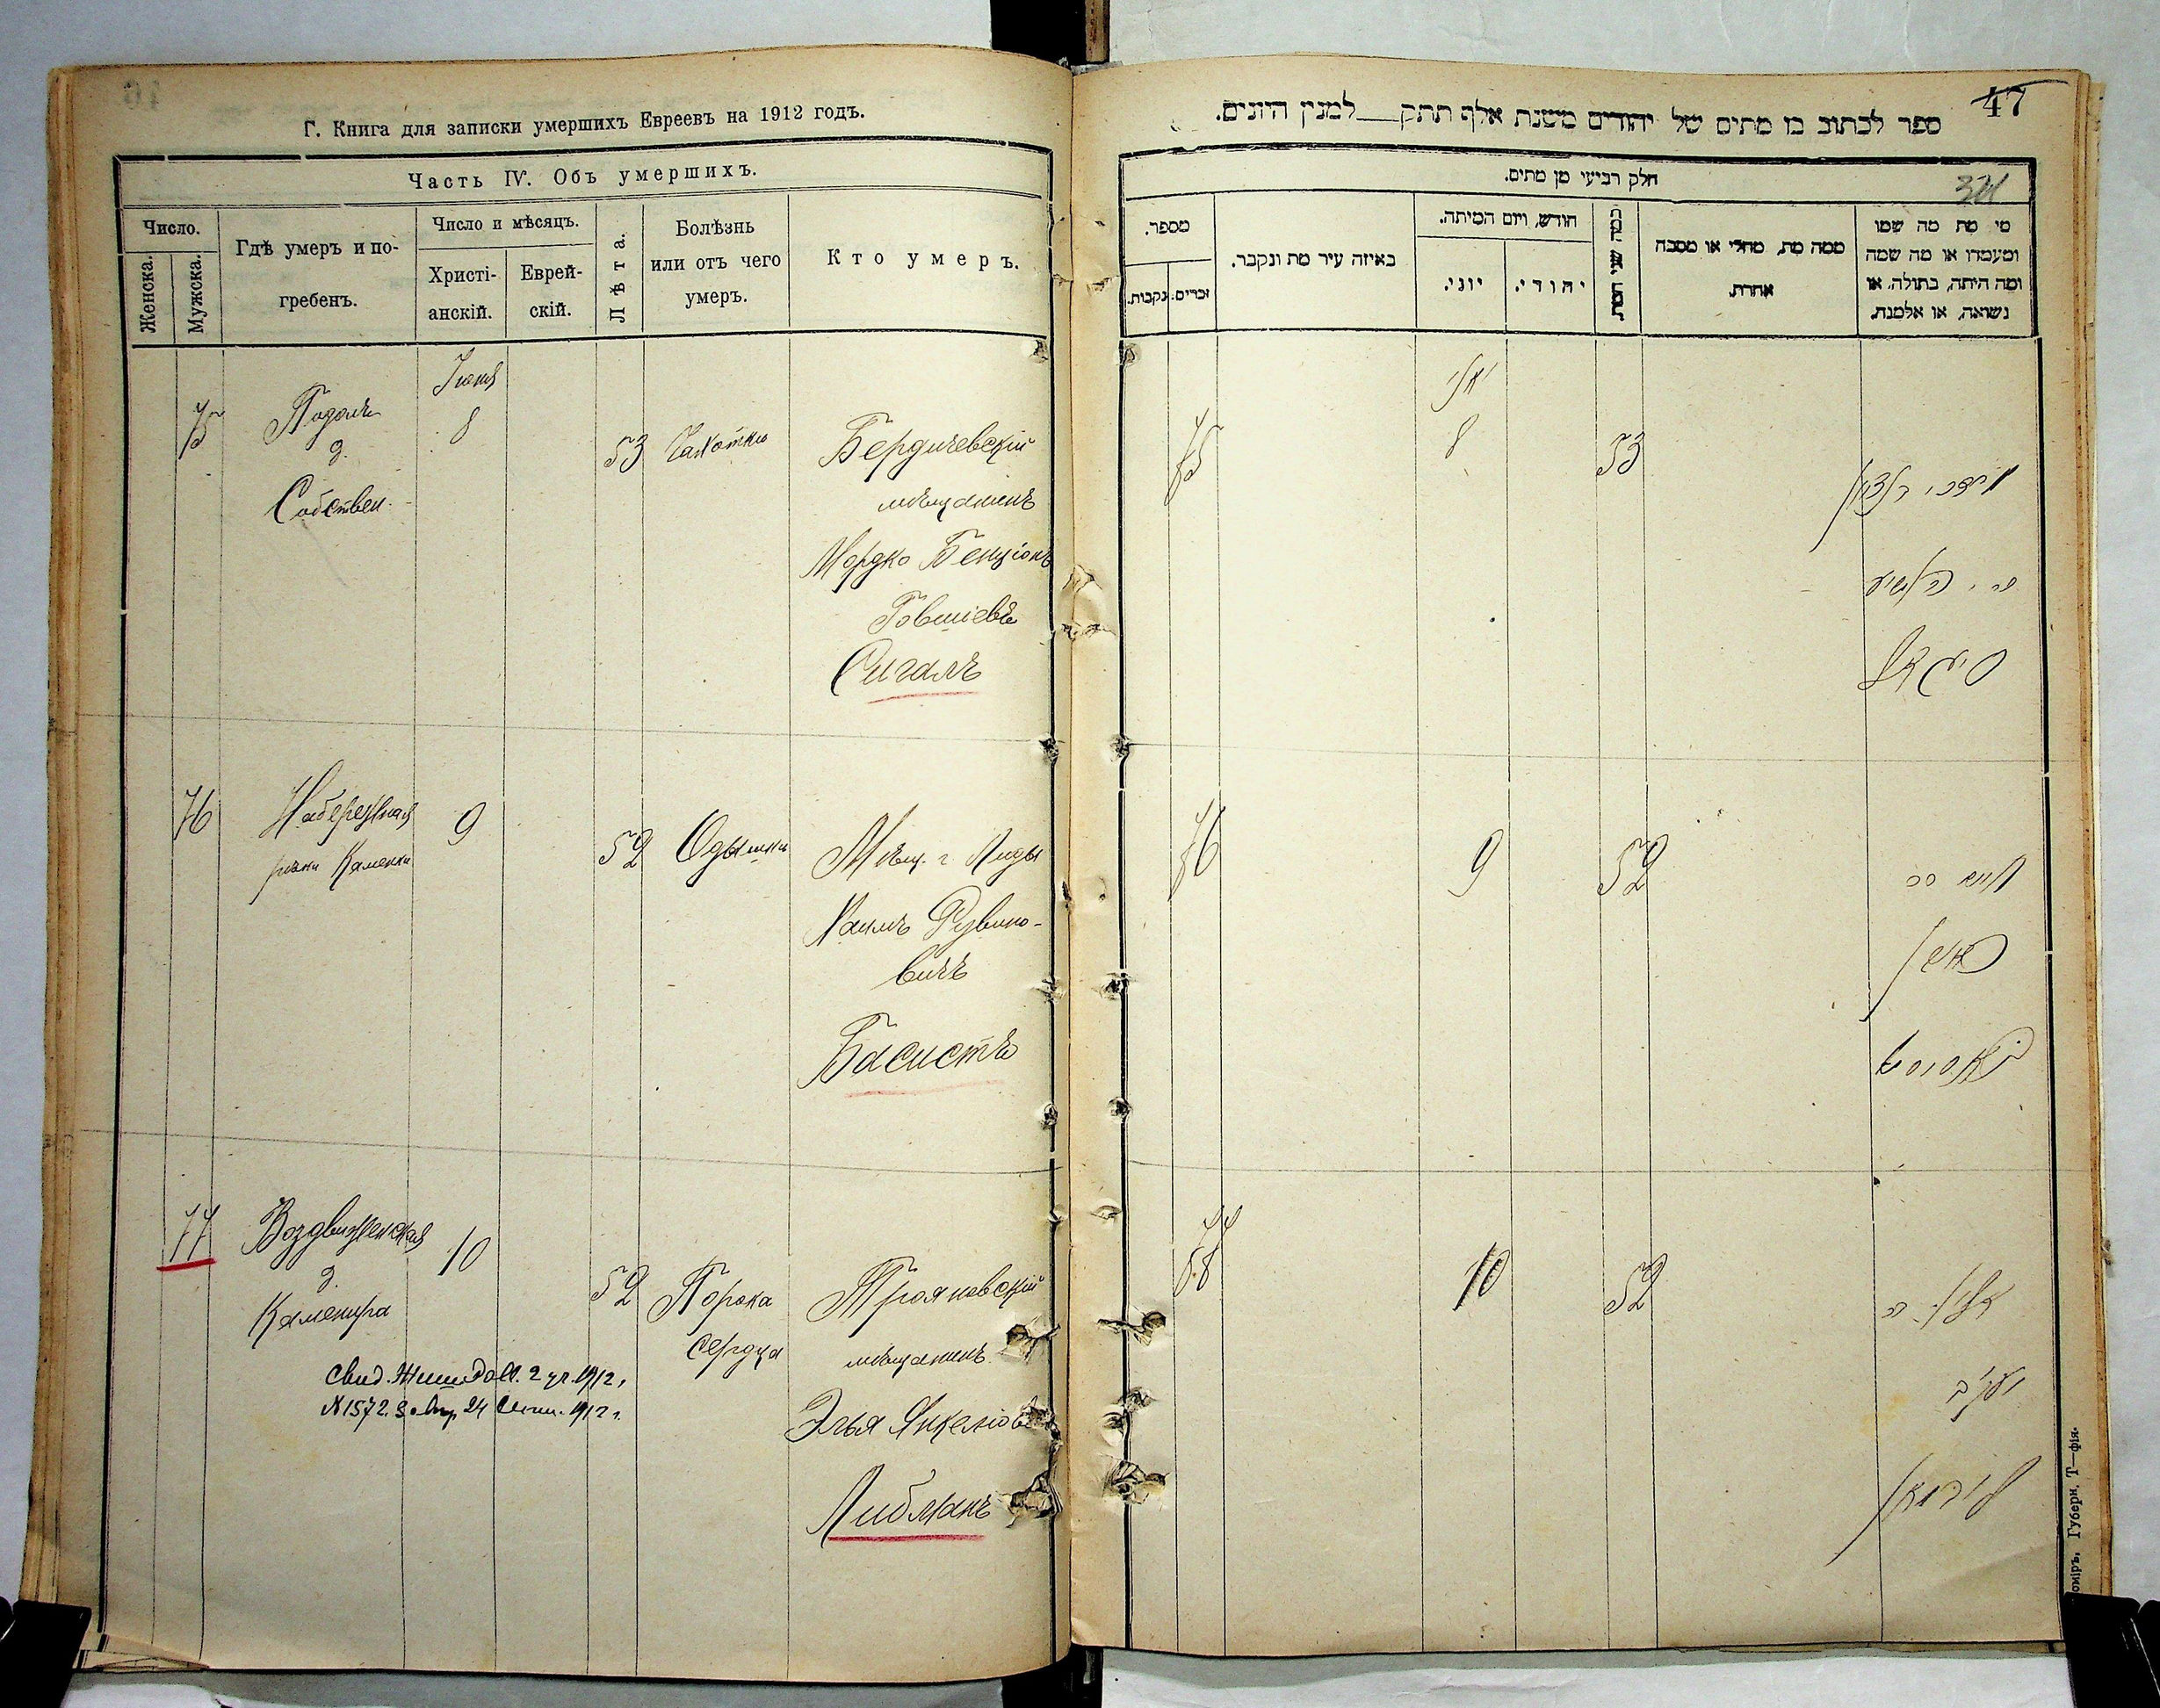 Г. Книга для записки умершихъ Евреевъ на 1912 годъ.
Часть IV. Объ умершихъ.
Число.
Женска.
Мужска.
Гдѣ умеръ и по-
гребенъ.
Число и мѣсяцъ.
Христі-
анскій.
Еврей-
скій.
Лѣта.
Болѣзнь
или отъ чего
умеръ.
Кто умеръ.
75
д.
Собствен.
Іюня
8
53
Чахотка
Бердичевскій
мѣщанинъ
Мордко Бенціонъ
Говшіевъ
Сигалъ
76
Набережная
рѣки Каменки
9
52
Одышка
Мѣщ. г. Лиды
Хаимъ Рувино-
вичъ
Басистъ
77
Воздвиженская
д.
10
52
Порока
сердца
Трояновскій
мѣщанинъ
Элья Янкелювъ
Либманъ
Свид. 2 уч. 1912 г.
№ 1572. 24 1912 г.
47
ספר לכתוב בו מתים של יהודים משנת אלף תתק למנין היונים.
חלק רביעי מן מתים.
מספר.
זכרים.
נקבות.
באיזה עיר מת ונקבר.
חודש, ויום המיתה.
יוני.
יהודי.
כמה שני המת
ממה מת, מחלי או מסבה
אחרת.
מי מת מה שמו
ומעמדו או מה שמה
ומה היתה, בתולה, או
נשואה, או אלמנה.
75
יוני
8
53
מרדכי בנציון
סיגאל
76
9
52
חיים
ראובן
באסיסט
77
10
52
יעקב
ליבמאן
Губерн. Т—фія.